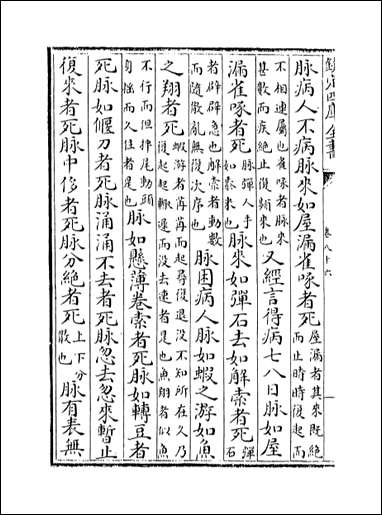 欽定四庫全書
卷八十六
脉病人不病脉來如屋漏雀啄者死屋漏者其來既絶而止時時復起而
不相連屬也雀啄者脉來甚數而疾絶止復頻來也又經言得病七八日脉如屋
漏雀啄者死脉彈人手如黍米也脉來如彈石去如解索者死彈石
者辟辟急也解索者動數而隨散亂無復次序也脉困病人脉如蝦之游如魚
之翔者死蝦游者苒苒而起尋復退沒不知所在久乃復起起輙遲而沒去速者是也魚翔者似魚
不行而但掉尾動頭身揺而久住者是也脉如懸薄卷索者死脉如轉豆者
死脉如偃刀者死脉涌涌不去者死脉忽去忽來暫止
復來者死脉中侈者死脉分絶者死上下分散也脉有表無